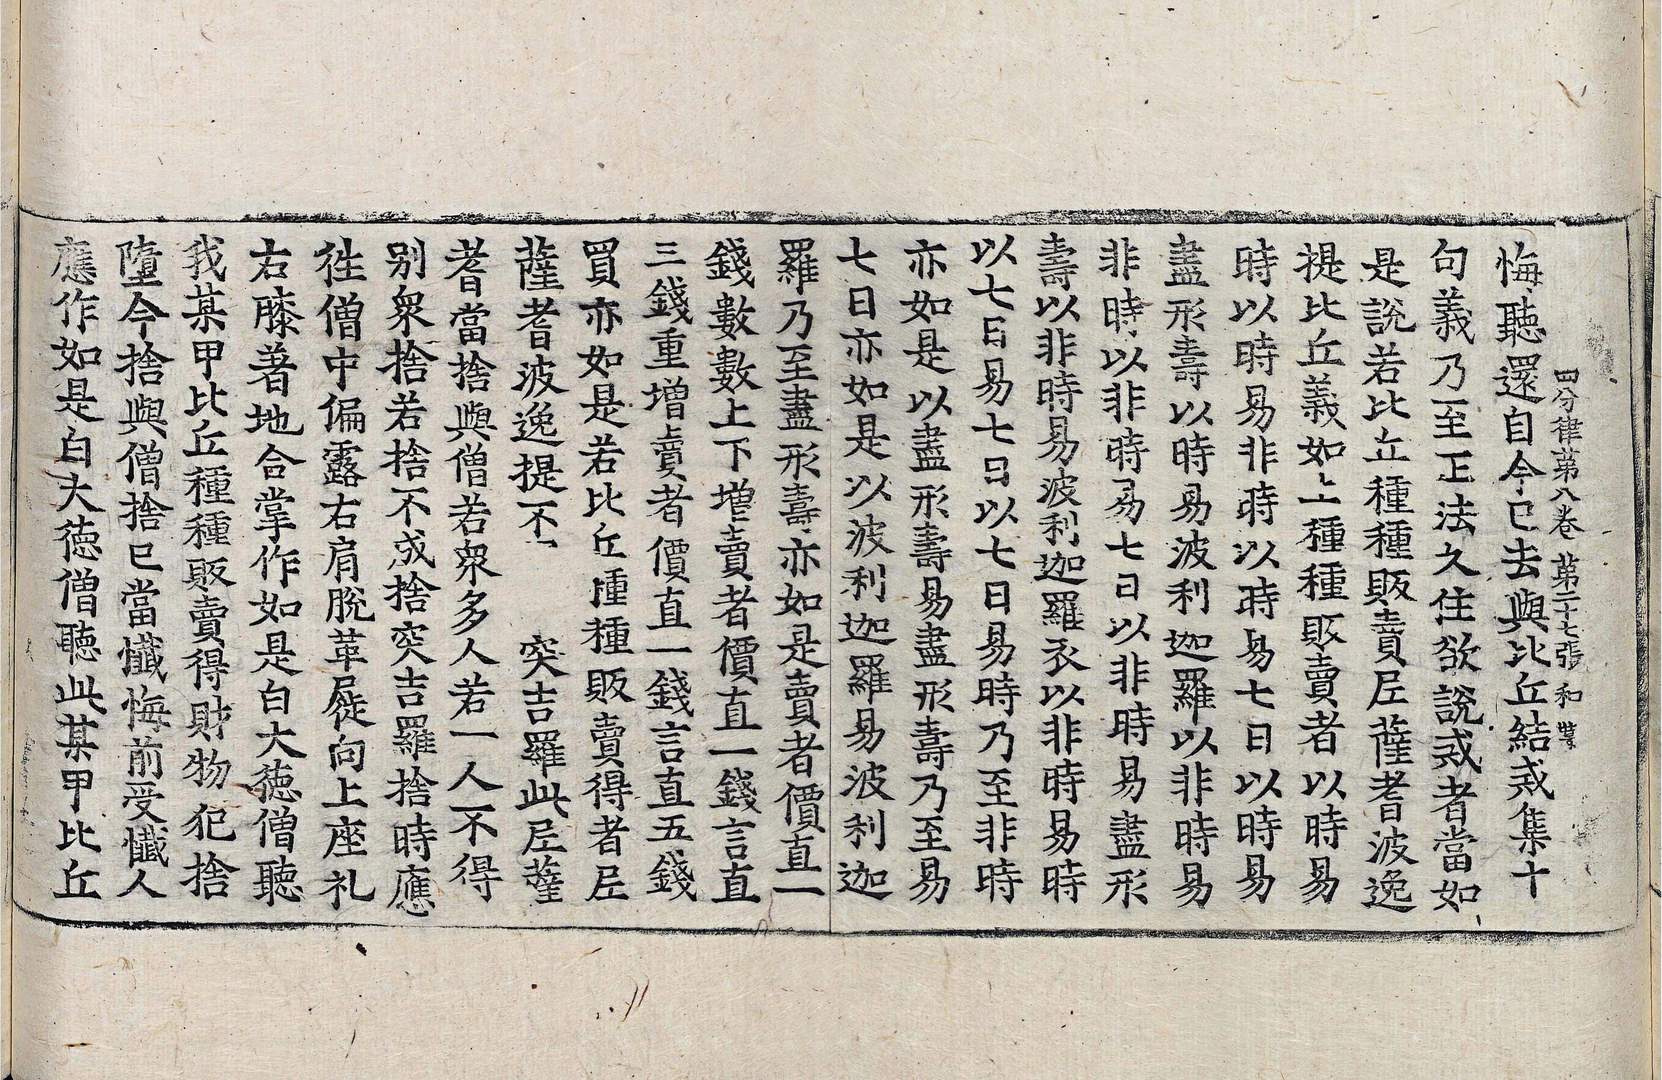 四分律第八卷 第二十七張 和
悔聽還自今已去與比丘結戒集十
句義乃至正法久住欲說戒者當如
是說若比丘種種販賣尼薩耆波逸
提比丘義如上種種販賣者以時易
時以時易非時以時易七日以時易
盡形壽以時易波利迦羅以非時易
非時以非時易七日以非時易盡形
壽以非時易波利迦羅衣以非時易時
以七日易七日以七日易時乃至非時
亦如是以盡形壽易盡形壽乃至易
七日亦如是以波利迦羅易波利迦
羅乃至盡形壽亦如是賣者價直一
錢數數上下增賣者價直一錢言直
三錢重增賣者價直一錢言直五錢
買亦如是若比丘種種販賣得者尼
薩耆波逸提不 突吉羅此尼薩
耆當捨與僧若衆多人若一人不得
别衆捨若捨不成捨突吉羅捨時應
往僧中偏露右肩脫革屣向上座礼
右膝著地合掌作如是白大徳僧聽
我某甲比丘種種販賣得財物犯捨
墮今捨與僧捨已當懺悔前受懺人
應作如是白大徳僧聽此某甲比丘